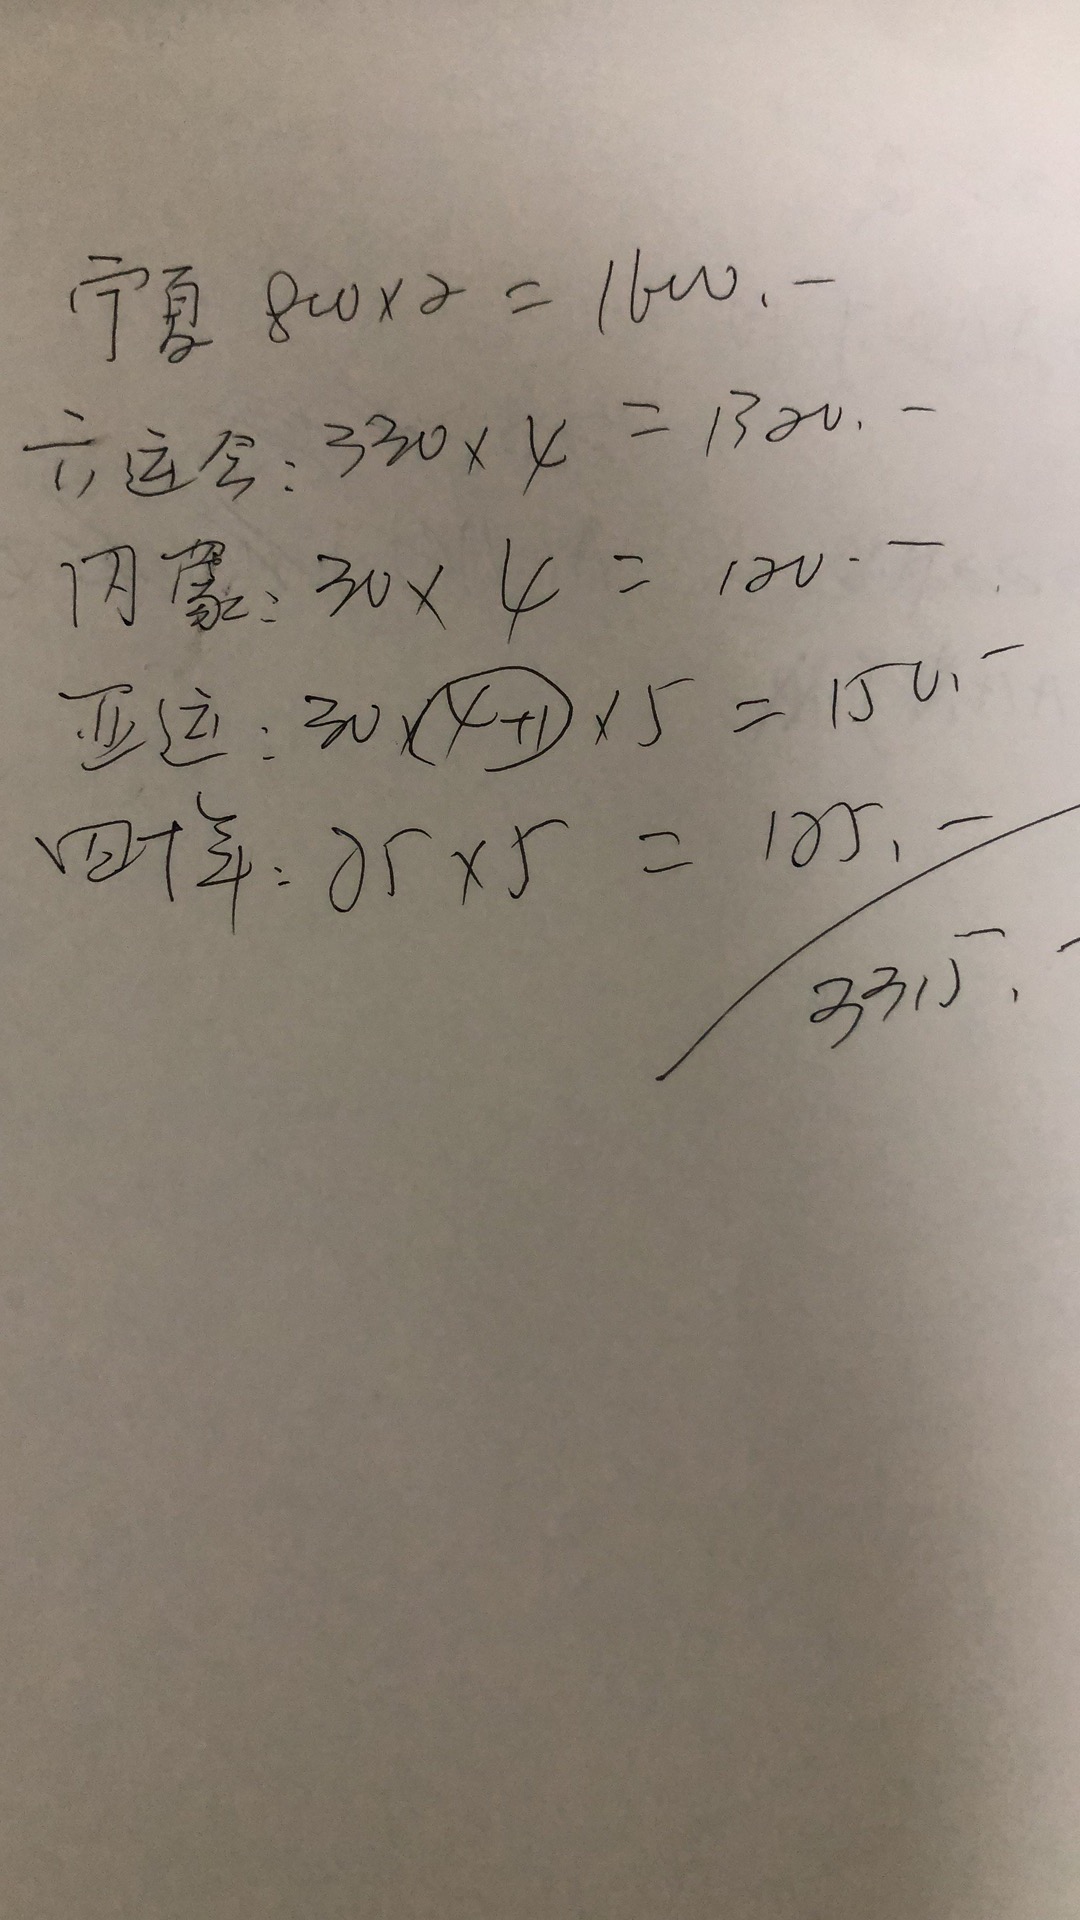 宁夏 800×2 = 1600.-
六运会: 330×4 = 1320.-
内蒙: 30×4 = 120.-
亚运: 30×(4+1)×5 = 150.-
四十年: 25×5 = 125.-
3315.-